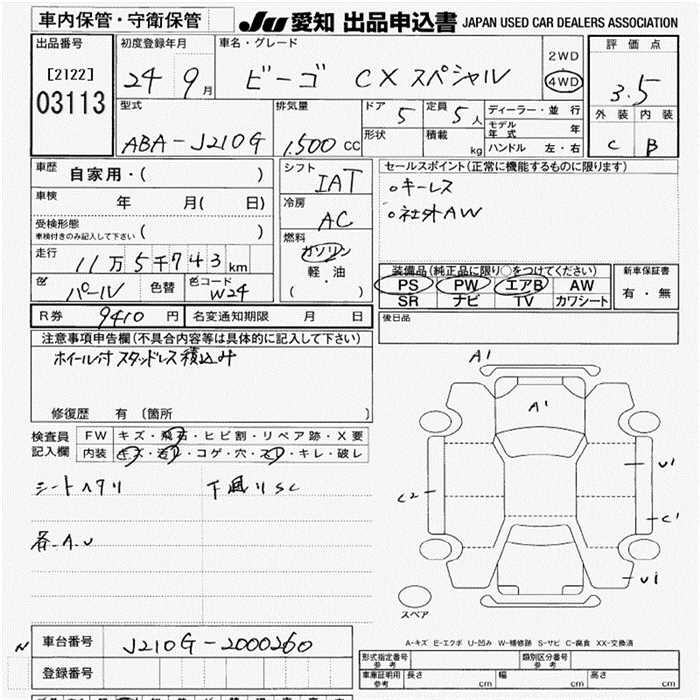 車内保管・守衛保管
JU 愛知 出品申込書 JAPAN USED CAR DEALERS ASSOCIATION
出品番号
[2122]
03113
初度登録年月
24 9月
車名・グレード
ビーゴ CX スペシャル
2WD
4WD
評価点
3.5
外装 内装
C B
型式
ABA-J210G
排気量
1,500 CC
ドア 5
形状
定員 5人
積載 kg
ディーラー・並行
モデル年式 年
ハンドル 左・右
車歴 自家用・( )
車検 年 月( 日)
受検形態
車検付きのみ記入して下さい ( )
走行 11万5千743km
色 パール 色替 色コード W24
シフト IAT
冷房 AC
燃料
ガソリン
軽・油
( )
セールスポイント(正常に機能するものに限ります)
○キーレス
○社外AW
装備品(純正品に限り○をつけてください)
PS PW エアB AW
SR ナビ TV カワシート
新車保証書
有・無
R券 9410 円 名変通知期限 月 日
後日品
注意事項申告欄(不具合内容等は具体的に記入して下さい)
ホイール付スタッドレス積込み
修復歴 有〔箇所
検査員
記入欄
FW キズ・飛石・ヒビ割・リペア跡・X要
内装 キズ・汚レ・コゲ・穴・スレ・キレ・破レ
シートヘタリ 下廻りSC
各.A.U
A1
A1
U1
C2
C1
U1
スペア
A-キズ E-エクボ U-凹み W-補修跡 S-サビ C-腐食 XX-交換済
N
車台番号 J210G-2000260
登録番号
形式指定番号
参考
類別区分番号
参考
車庫証明用
参考
長さ cm 幅 cm 高さ cm